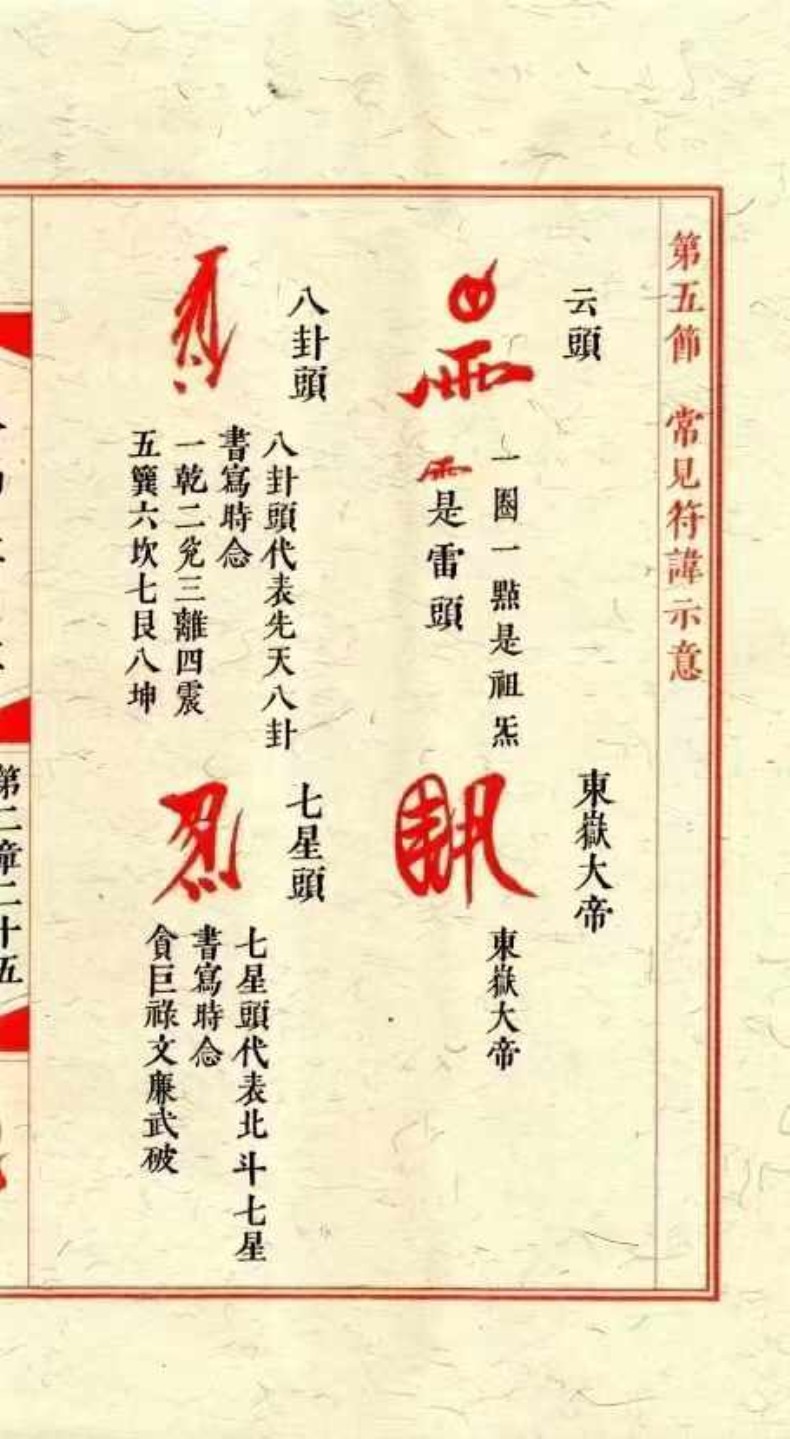 第五節 常見符諱示意
云頭
一圈一點是祖炁
是雷頭
東嶽大帝
東嶽大帝
八卦頭
八卦頭代表先天八卦
書寫時念
一乾二兌三離四震
五巽六坎七艮八坤
七星頭
七星頭代表北斗七星
書寫時念
貪巨祿文廉武破
第二章二十五